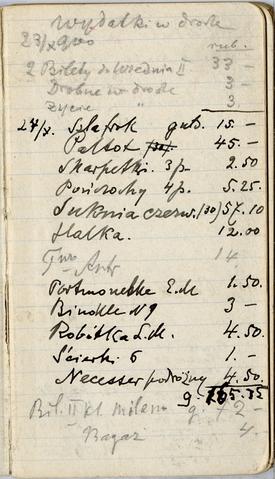 Wydatki w drodze
23/x
rub.
2 Bilety do Wiednia II 33 -
Drobne w drodze 3 -
Życie " 3
24/x. Szlafrok guld. 15. -
Paltot 45. -
Skarpetki 3 p. 2.50
Pończochy 4 p. 5.25.
Suknia czerw. (30) 57.10
Halka. 12.00
14
Portmonetke E.d. 1.50.
Binokle N9 3 -
Robótka L.d. 4.50.
Ścierki 6 1. -
Necesser podróżny 4.50.
g.
Bil. II kl. g. 72 -
Bagaż 4.